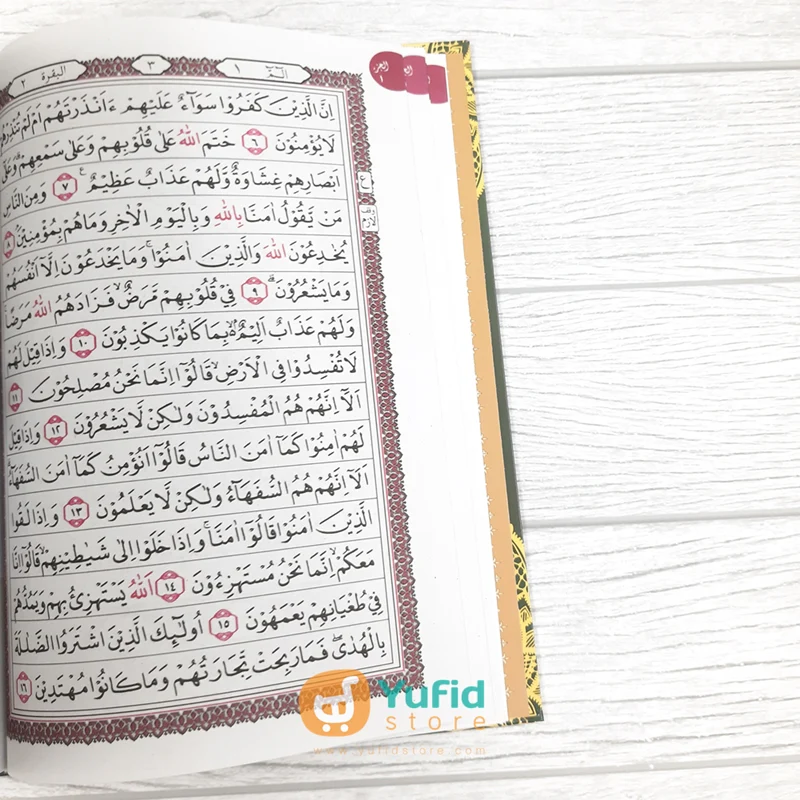 الٓمّٓ ١
٣
البقرة ٢
اِنَّ الَّذِيْنَ كَفَرُوْا سَوَآءٌ عَلَيْهِمْ ءَاَنْذَرْتَهُمْ اَمْ لَمْ تُنْذِرْهُمْ
لَا يُؤْمِنُوْنَ ٦ خَتَمَ اللّٰهُ عَلٰى قُلُوْبِهِمْ وَعَلٰى سَمْعِهِمْ ۗ وَعَلٰٓى
اَبْصَارِهِمْ غِشَاوَةٌ وَّلَهُمْ عَذَابٌ عَظِيْمٌ ٧ وَمِنَ النَّاسِ
مَنْ يَّقُوْلُ اٰمَنَّا بِاللّٰهِ وَبِالْيَوْمِ الْاٰخِرِ وَمَا هُمْ بِمُؤْمِنِيْنَ ۘ ٨
يُخٰدِعُوْنَ اللّٰهَ وَالَّذِيْنَ اٰمَنُوْا ۚ وَمَا يَخْدَعُوْنَ اِلَّآ اَنْفُسَهُمْ
وَمَا يَشْعُرُوْنَ ۗ ٩ فِيْ قُلُوْبِهِمْ مَّرَضٌ ۙ فَزَادَهُمُ اللّٰهُ مَرَضًا ۚ
وَلَهُمْ عَذَابٌ اَلِيْمٌ ۢ ۙ بِمَا كَانُوْا يَكْذِبُوْنَ ١٠ وَاِذَا قِيْلَ لَهُمْ
لَا تُفْسِدُوْا فِى الْاَرْضِ ۙ قَالُوْٓا اِنَّمَا نَحْنُ مُصْلِحُوْنَ ١١
اَلَآ اِنَّهُمْ هُمُ الْمُفْسِدُوْنَ وَلٰكِنْ لَّا يَشْعُرُوْنَ ١٢ وَاِذَا قِيْلَ
لَهُمْ اٰمِنُوْا كَمَآ اٰمَنَ النَّاسُ قَالُوْٓا اَنُؤْمِنُ كَمَآ اٰمَنَ السُّفَهَاۤءُ ۗ
اَلَآ اِنَّهُمْ هُمُ السُّفَهَاۤءُ وَلٰكِنْ لَّا يَعْلَمُوْنَ ١٣ وَاِذَا لَقُوا
الَّذِيْنَ اٰمَنُوْا قَالُوْٓا اٰمَنَّا ۚ وَاِذَا خَلَوْا اِلٰى شَيٰطِيْنِهِمْ ۙ قَالُوْٓا اِنَّا
مَعَكُمْ ۙ اِنَّمَا نَحْنُ مُسْتَهْزِءُوْنَ ١٤ اَللّٰهُ يَسْتَهْزِئُ بِهِمْ وَيَمُدُّهُمْ
فِيْ طُغْيَانِهِمْ يَعْمَهُوْنَ ١٥ اُولٰۤىِٕكَ الَّذِيْنَ اشْتَرَوُا الضَّلٰلَةَ
بِالْهُدٰىۖ فَمَا رَبِحَتْ تِّجَارَتُهُمْ وَمَا كَانُوْا مُهْتَدِيْنَ ١٦
ع
وقف لازم
الجزء ١
Yufid
store
www.yufidstore.com